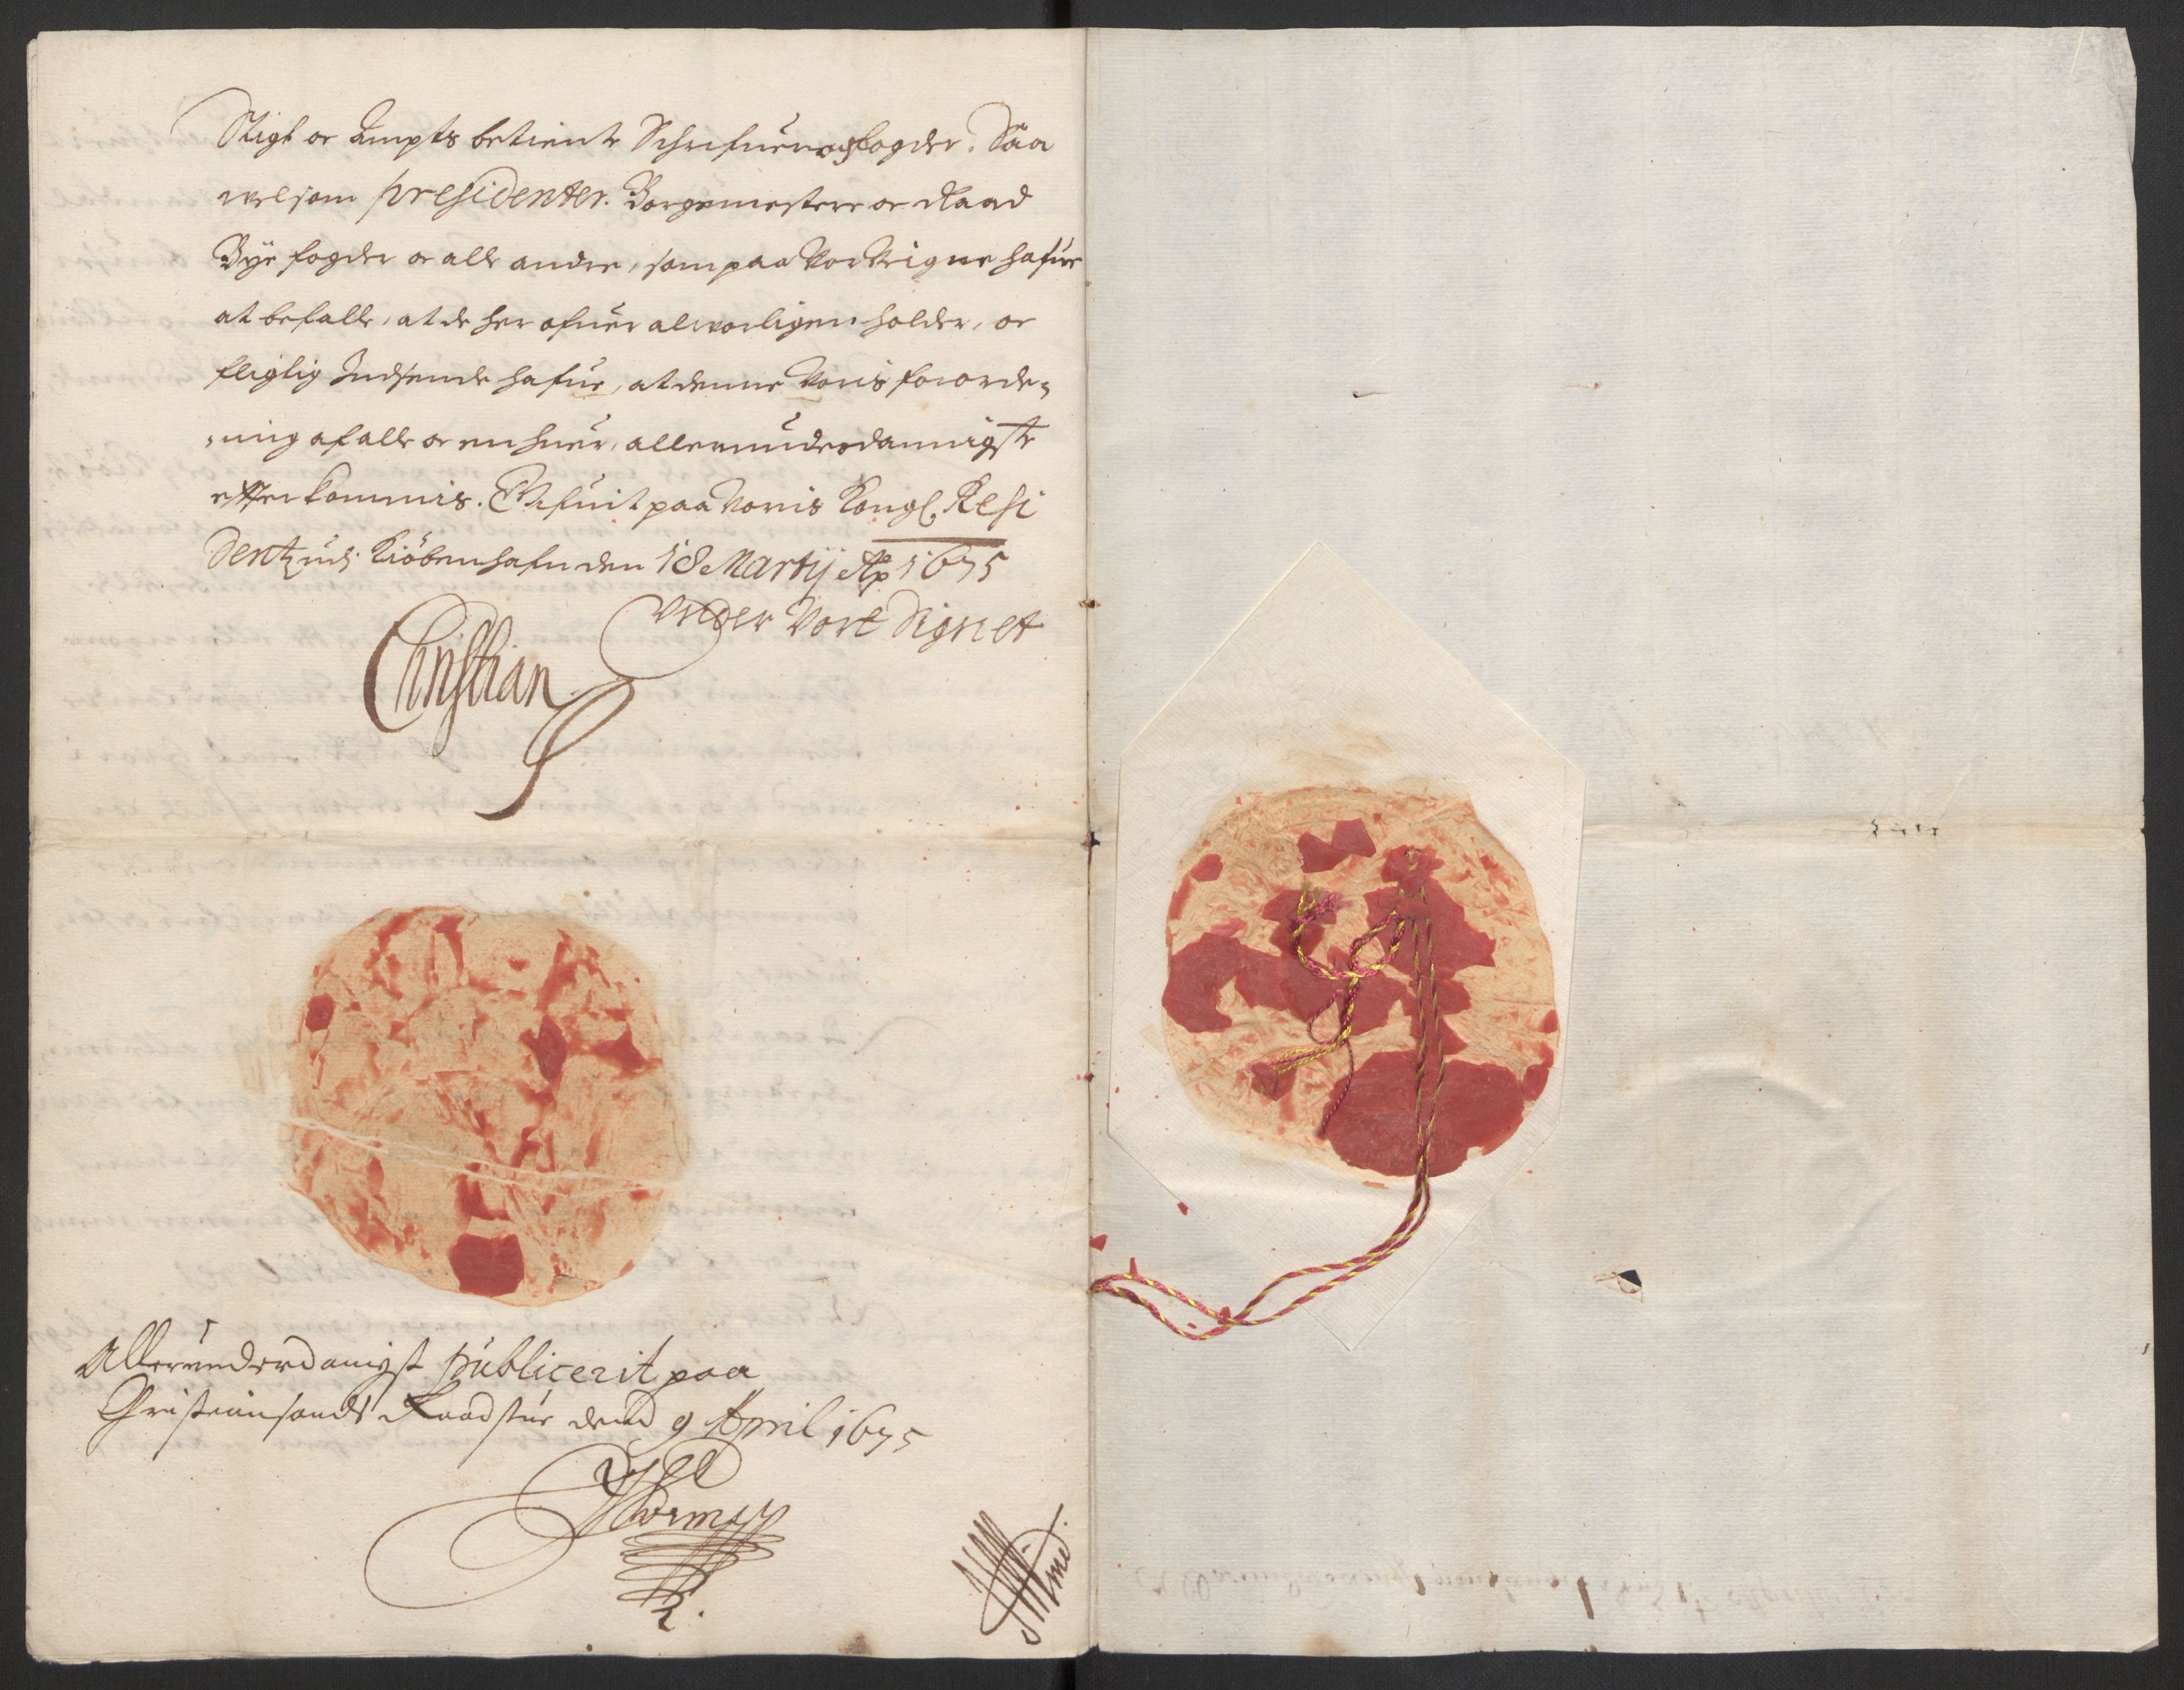 Stigt oc Ampts betiente Schrifuer og fogder. Saa
velsom presidenter. Borgemestere oc Raad
Bÿe fogder oc alle andre, som paa Vor Veigne hafue
at befalle, at de her ofuer alvorligen holder, oc
fligtig Indseende hafue, at denne Voris fororde-
-ning af alle oc en huer, allerunderdannigste
efterkommis. Skrefuit paa Voris Kongl. Resi
dentz udj Kiöbenhafn den 18 Martÿ Aō 1675
Under Vort Signet
Christian
Allerunderdanigst publicerit paa
Christiansands Raadstue dend 9 April 1675